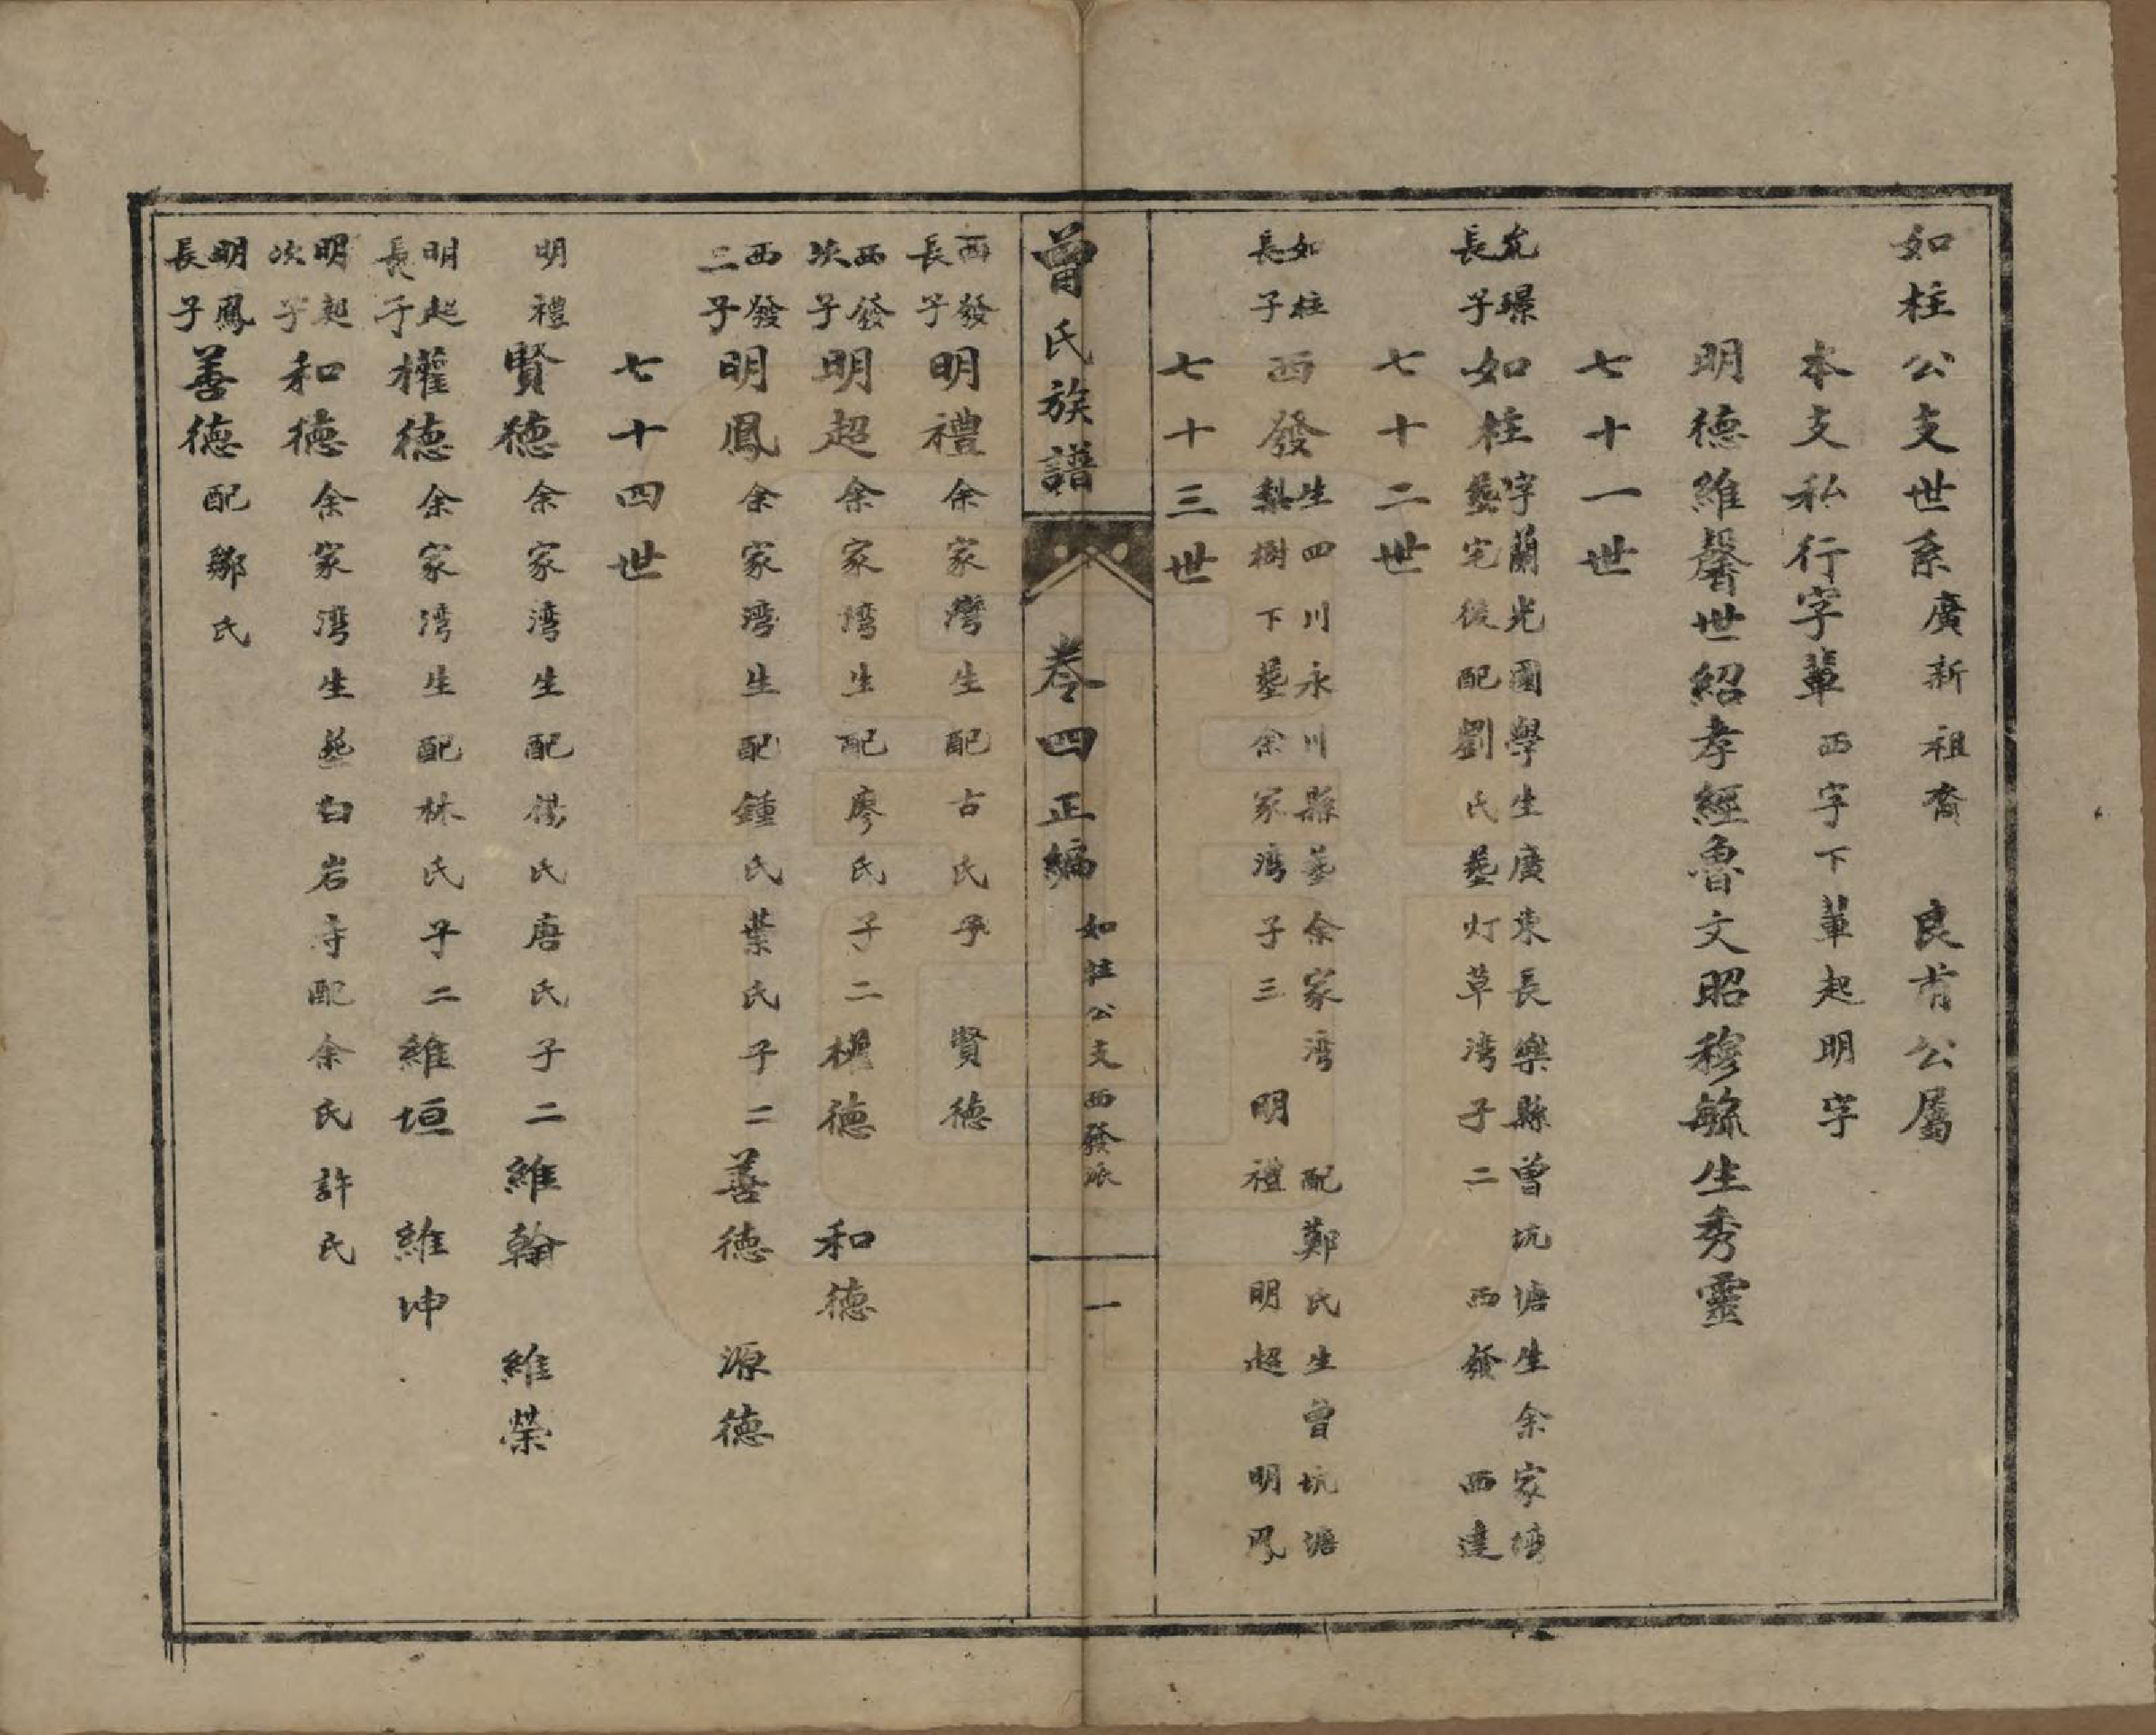 如柱公支世系廣新祖裔 良甫公屬
本支私行字輩西字下輩起明字
明德維馨世紹孝經魯文昭穆毓生秀靈
七十一世
允璟長子如柱字蘭光國學生廣東長樂縣曾坑塘生余家塆
墓宅後配劉氏墓灯草湾子二 西發 西達
七十二世
如柱長子西發生四川永川縣墓余家湾 配鄭氏生曾坑塘
梨樹下墓余家湾子三 明禮 明超 明鳳
七十三世
曾氏族譜 卷四正編 如柱公支西發派 一
西發長子明禮余家灣生配古氏子 賢德
西發次子明超余家塆生配廖氏子二權德 和德
西發三子明鳳余家湾生配鍾氏葉氏子二善德 源德
七十四世
明禮賢德余家湾生配楊氏唐氏子二維翰 維榮
明超長子權德余家湾生配林氏子二維垣 維坤
明超次子和德余家湾生墓白岩寺配余氏許氏
明鳳長子善德配鄒氏